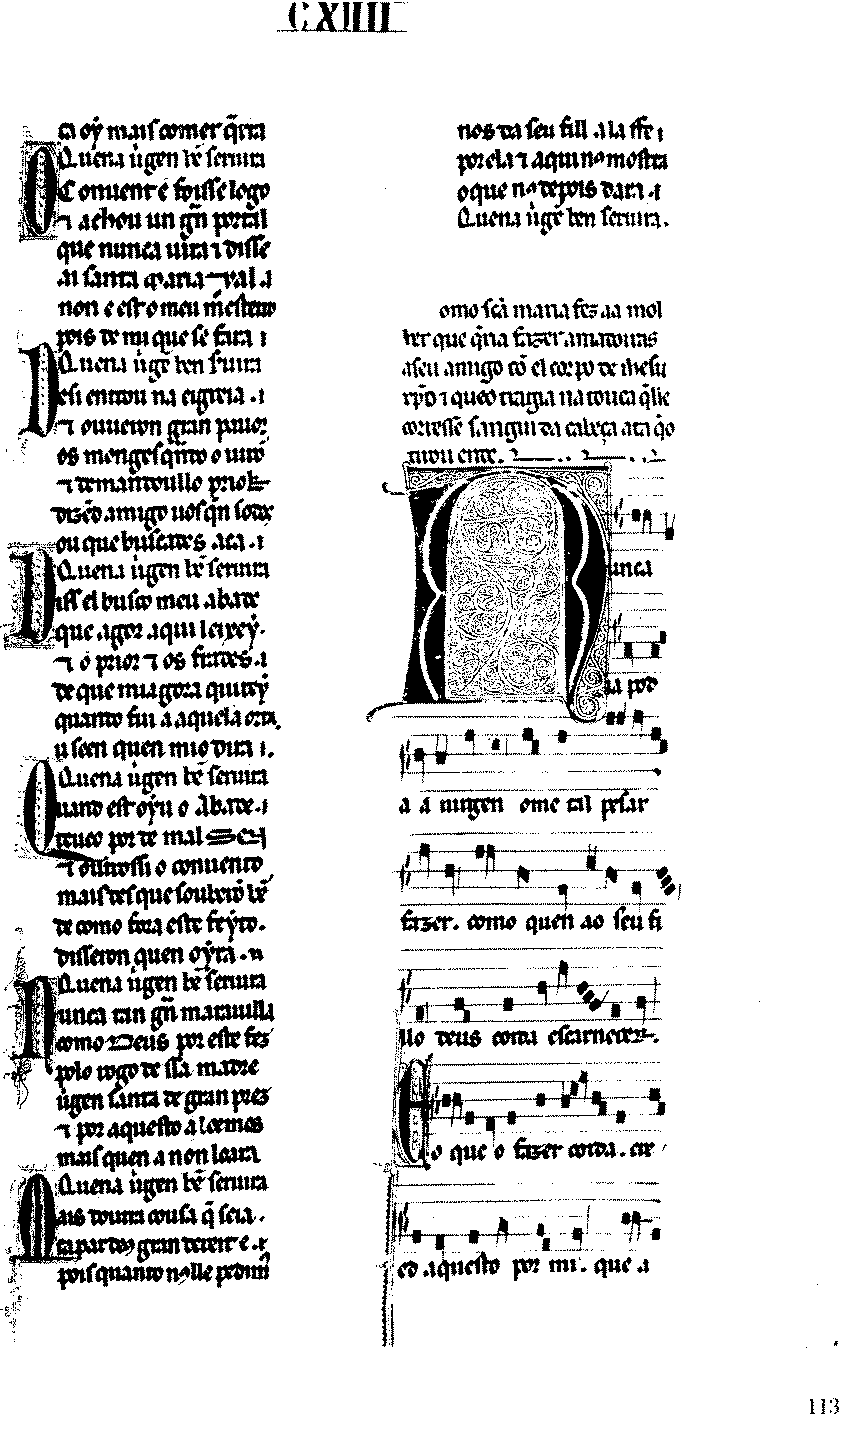 CXIIII
ta oỹ mais comer q̃rria
Quena uirgen bẽ seruira
Conuent e foisse logo
⁊ achou un grã portal
que nunca uira ⁊ disse
ai santa maria ual a
non e est o meu mõesteiro
pois de mi que se fara ⁊
Quena uirgẽ ben s'uira
Desi entrou na eigreia . ⁊
⁊ ouueron gran pauor
os monges q̃nto o uirõ
⁊ demandoullo prior
dizẽd amigo uos q̃n sodes
ou que buscades aca . ⁊
Quena uirgen bẽ seruira
Diss el busco meu abade
que agor aqui leixey.
⁊ o prior ⁊ os frades . ⁊
de que mi agora quitey
quanto fui a aquela orta
u seen quen mio dira ⁊.
Quena uirgen bẽ seruira
Quand est oyu o Abade . ⁊
teueo por de mal sen
⁊ outrossi o conuento
mais des que souberõ bẽ
de como fora este feyto.
disseron quen oyra . ⁊
Quena uirgen bẽ seruira
Nunca tan grã marauilla
como Deus por este fez
polo rogo de ssa madre
uirgen santa de gran prez
⁊ por aquesto a loemos
mais quen a non loara
Quena uirgen bẽ seruira
Mais doutra cousa q̃ seia .
ca par dos gran dereit e . ⁊
pois quanto nos lle pedim'
nos da seu fill a la ffe ⁊
por ela ⁊ aqui nos mostra
o que nos depois dara . ⁊
Quena uirgẽ ben seruira.
Como scã maria fez aa mol
ler que q̃ria fazer amadoiras
a seu amigo cõ el corpo de ihesu
xpõ ⁊ queo tragia na touca q̃lle
corresse sangui da cabeça ata q̃o
tirou ende.
Nunca
ia pod
a a ningen ome tal pesar
fazer. como quen ao seu fi
llo deus coida escarnecer.
E o que o fazer coida. cre
ed aquesto por mi. que a
113